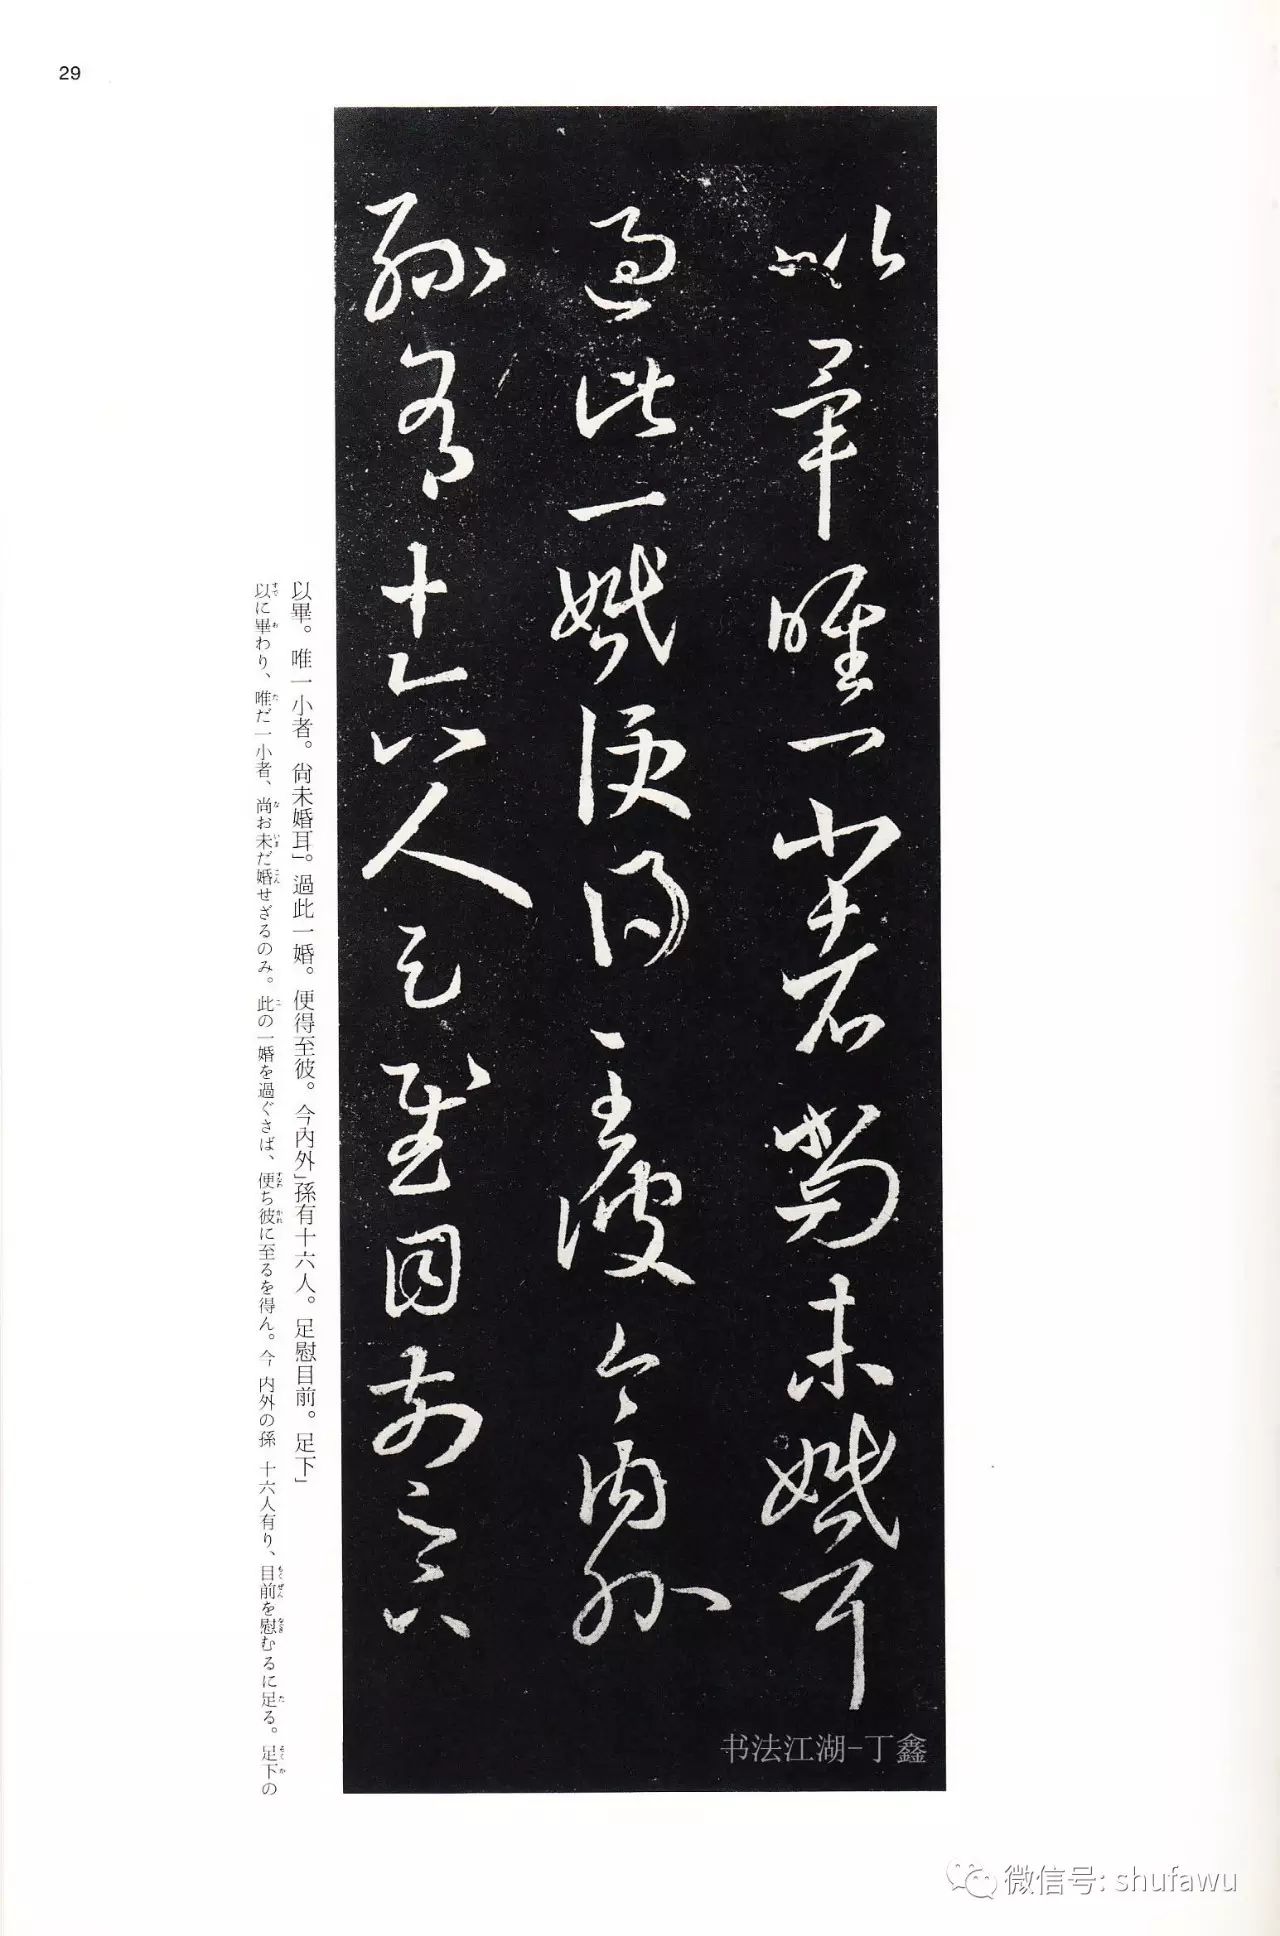 29
以畢唯一小者尚未婚耳
過此一婚便得至彼今內外
孫有十六人足慰目前足下
以畢。唯一小者。尙未婚耳」。過此一婚。便得至彼。今內外」孫有十六人。足慰目前。足下」
以に畢わり、唯だ一小者、尚お未だ婚せざるのみ。此の一婚を過ぐさば、便ち彼に至るを得ん。今 内外の孫 十六人有り、目前を慰むるに足る。足下の
书法江湖-丁鑫
微信号: shufawu